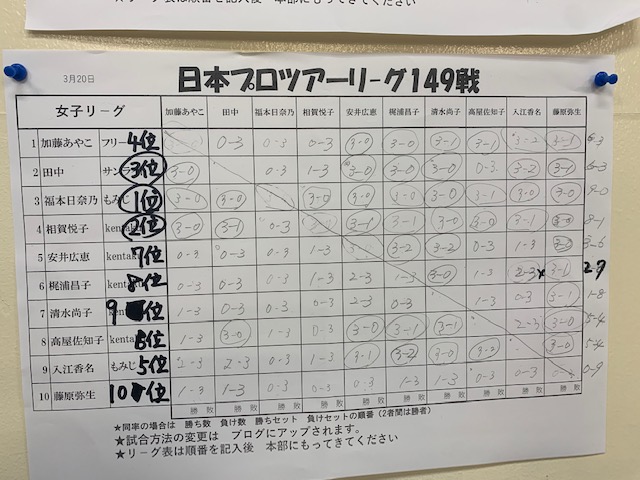 3月20日
日本プロツアーリーグ149戦
女子リーグ 加藤あやこ 田中 福本日奈乃 相賀悦子 安井広恵 梶浦昌子 清水尚子 高屋佐知子 入江香名 藤原弥生
1 加藤あやこ フリー 4位 0-3 0-3 0-3 3-0 3-0 3-1 3-1 3-2 3-1 6-3
2 田中 サン 3位 3-0 0-3 1-3 3-0 3-0 3-0 0-3 3-2 3-1 6-3
3 福本日奈乃 もみじ 1位 3-0 3-0 3-0 3-0 3-0 3-0 3-1 3-0 3-0 9-0
4 相賀悦子 kenta 2位 3-0 3-1 0-3 3-1 3-1 3-0 3-0 3-0 3-0 8-1
5 安井広恵 kenta 7位 0-3 0-3 0-3 1-3 3-2 3-2 0-3 1-3 3-6
6 梶浦昌子 kenta 8位 0-3 0-3 0-3 1-3 2-3 3-0 1-3 2-3 3-1 2-7
7 清水尚子 9位 1-3 0-3 0-3 0-3 2-3 0-3 1-3 0-3 3-1 1-8
8 高屋佐知子 位 1-3 3-0 1-3 0-3 3-0 3-1 3-1 2-3 3-0 5-4
9 入江香名 もみじ 5位 2-3 2-3 0-3 0-3 3-1 3-2 3-0 3-2 3-0 5-4
10 藤原弥生 10位 1-3 1-3 0-3 0-3 0-3 1-3 1-3 0-3 0-3 0-9
勝 敗 勝 敗 勝 敗 勝 敗 勝 敗 勝 敗 勝 敗 勝 敗 勝 敗 勝 敗
★同率の場合は 勝ち数 負け数 勝ちセット 負けセットの順番(2者間は勝者)
★試合方法の変更は ブログにアップされます。
★リーグ表は順番を記入後 本部にもってきてください